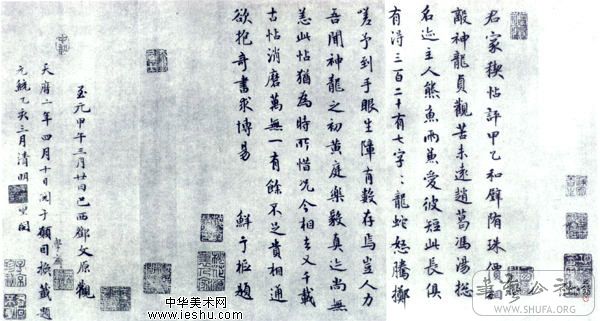 君家禊帖評甲乙和璧隋珠價相
敵神龍貞觀苦未遠趙葛馮湯總
名迹主人熊魚兩兼愛彼短此長俱
有得三百二十有七字〻龍蛇怒騰擲
嗟予到手眼生障有數存焉豈人力
吾聞神龍之初黃庭樂毅真迹尚無
恙此帖猶為時所惜況今相去又千載
古帖消磨萬無一有餘不足貴相通
欲抱奇書求博易 鮮于樞題
至元甲午三月廿四日巴西鄧文原觀
二年四月十日 于願同 題
元統乙亥三月清明
中华美术网
www.ieshu.com
WWW.SHUFA.ORG